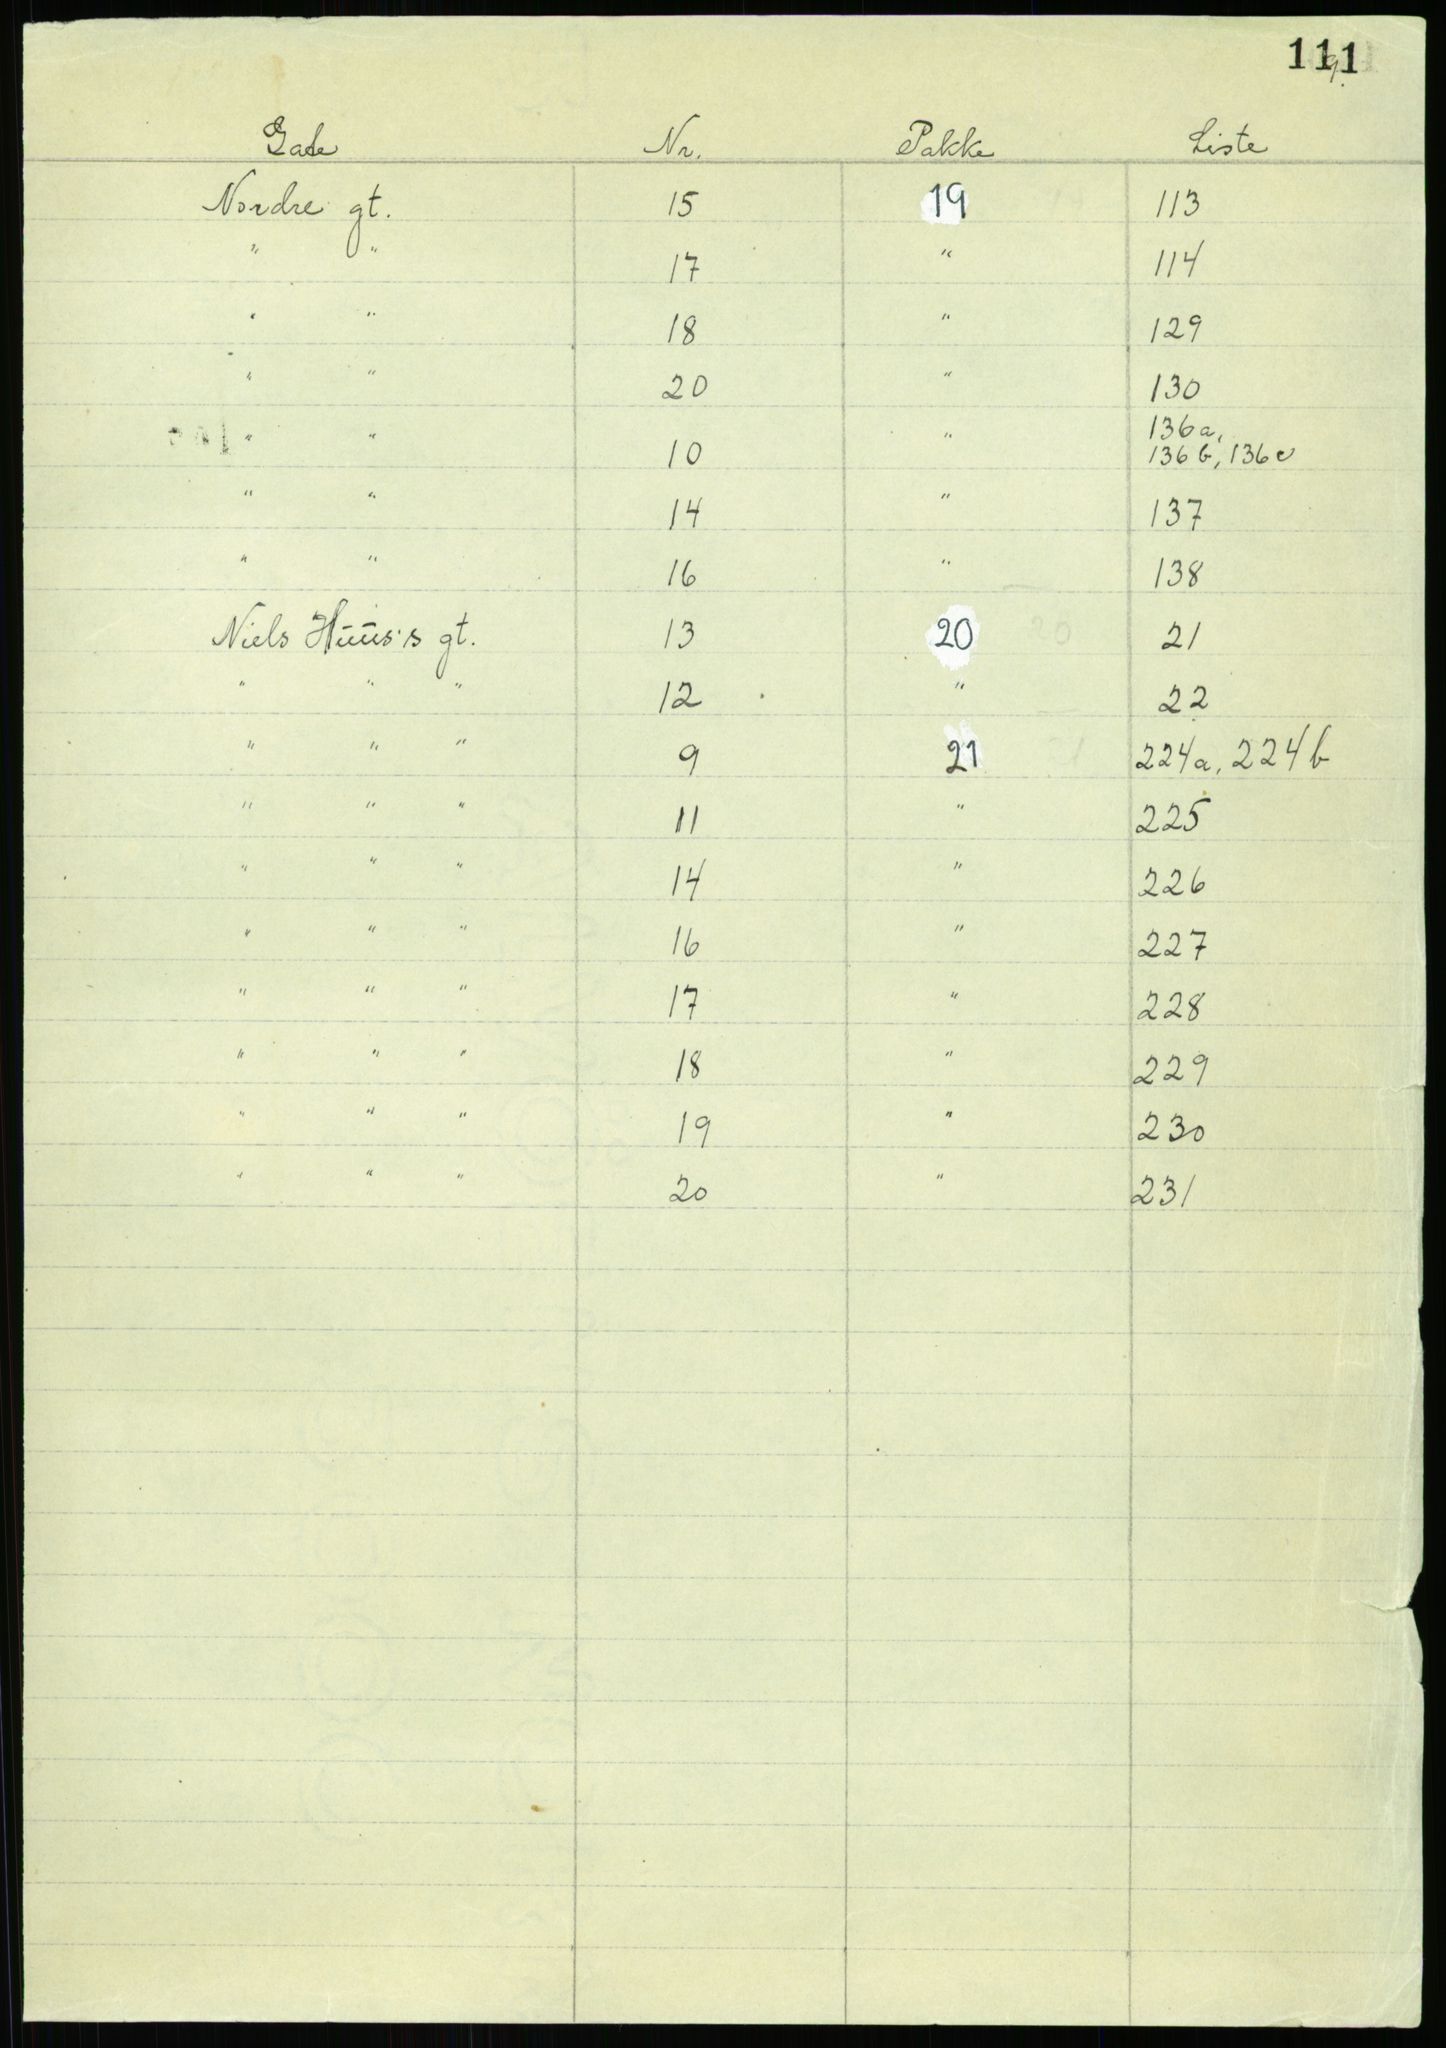 111
Gate Nr. Pakke Liste
Nordre gt. 15 19 113
" " 17 " 114
" " 18 " 129
" " 20 " 130
" " 10 " 136a, 
136b, 136c
" " 14 " 137
" " 16 " 138
Niels Huus's gt. 13 20 21
" " " 12 " 22
" " " 9 21 224a, 224b
" " " 11 " 225
" " " 14 " 226
" " " 16 " 227
" " " 17 " 228
" " " 18 " 229
" " " 19 " 230
" " " 20 " 231